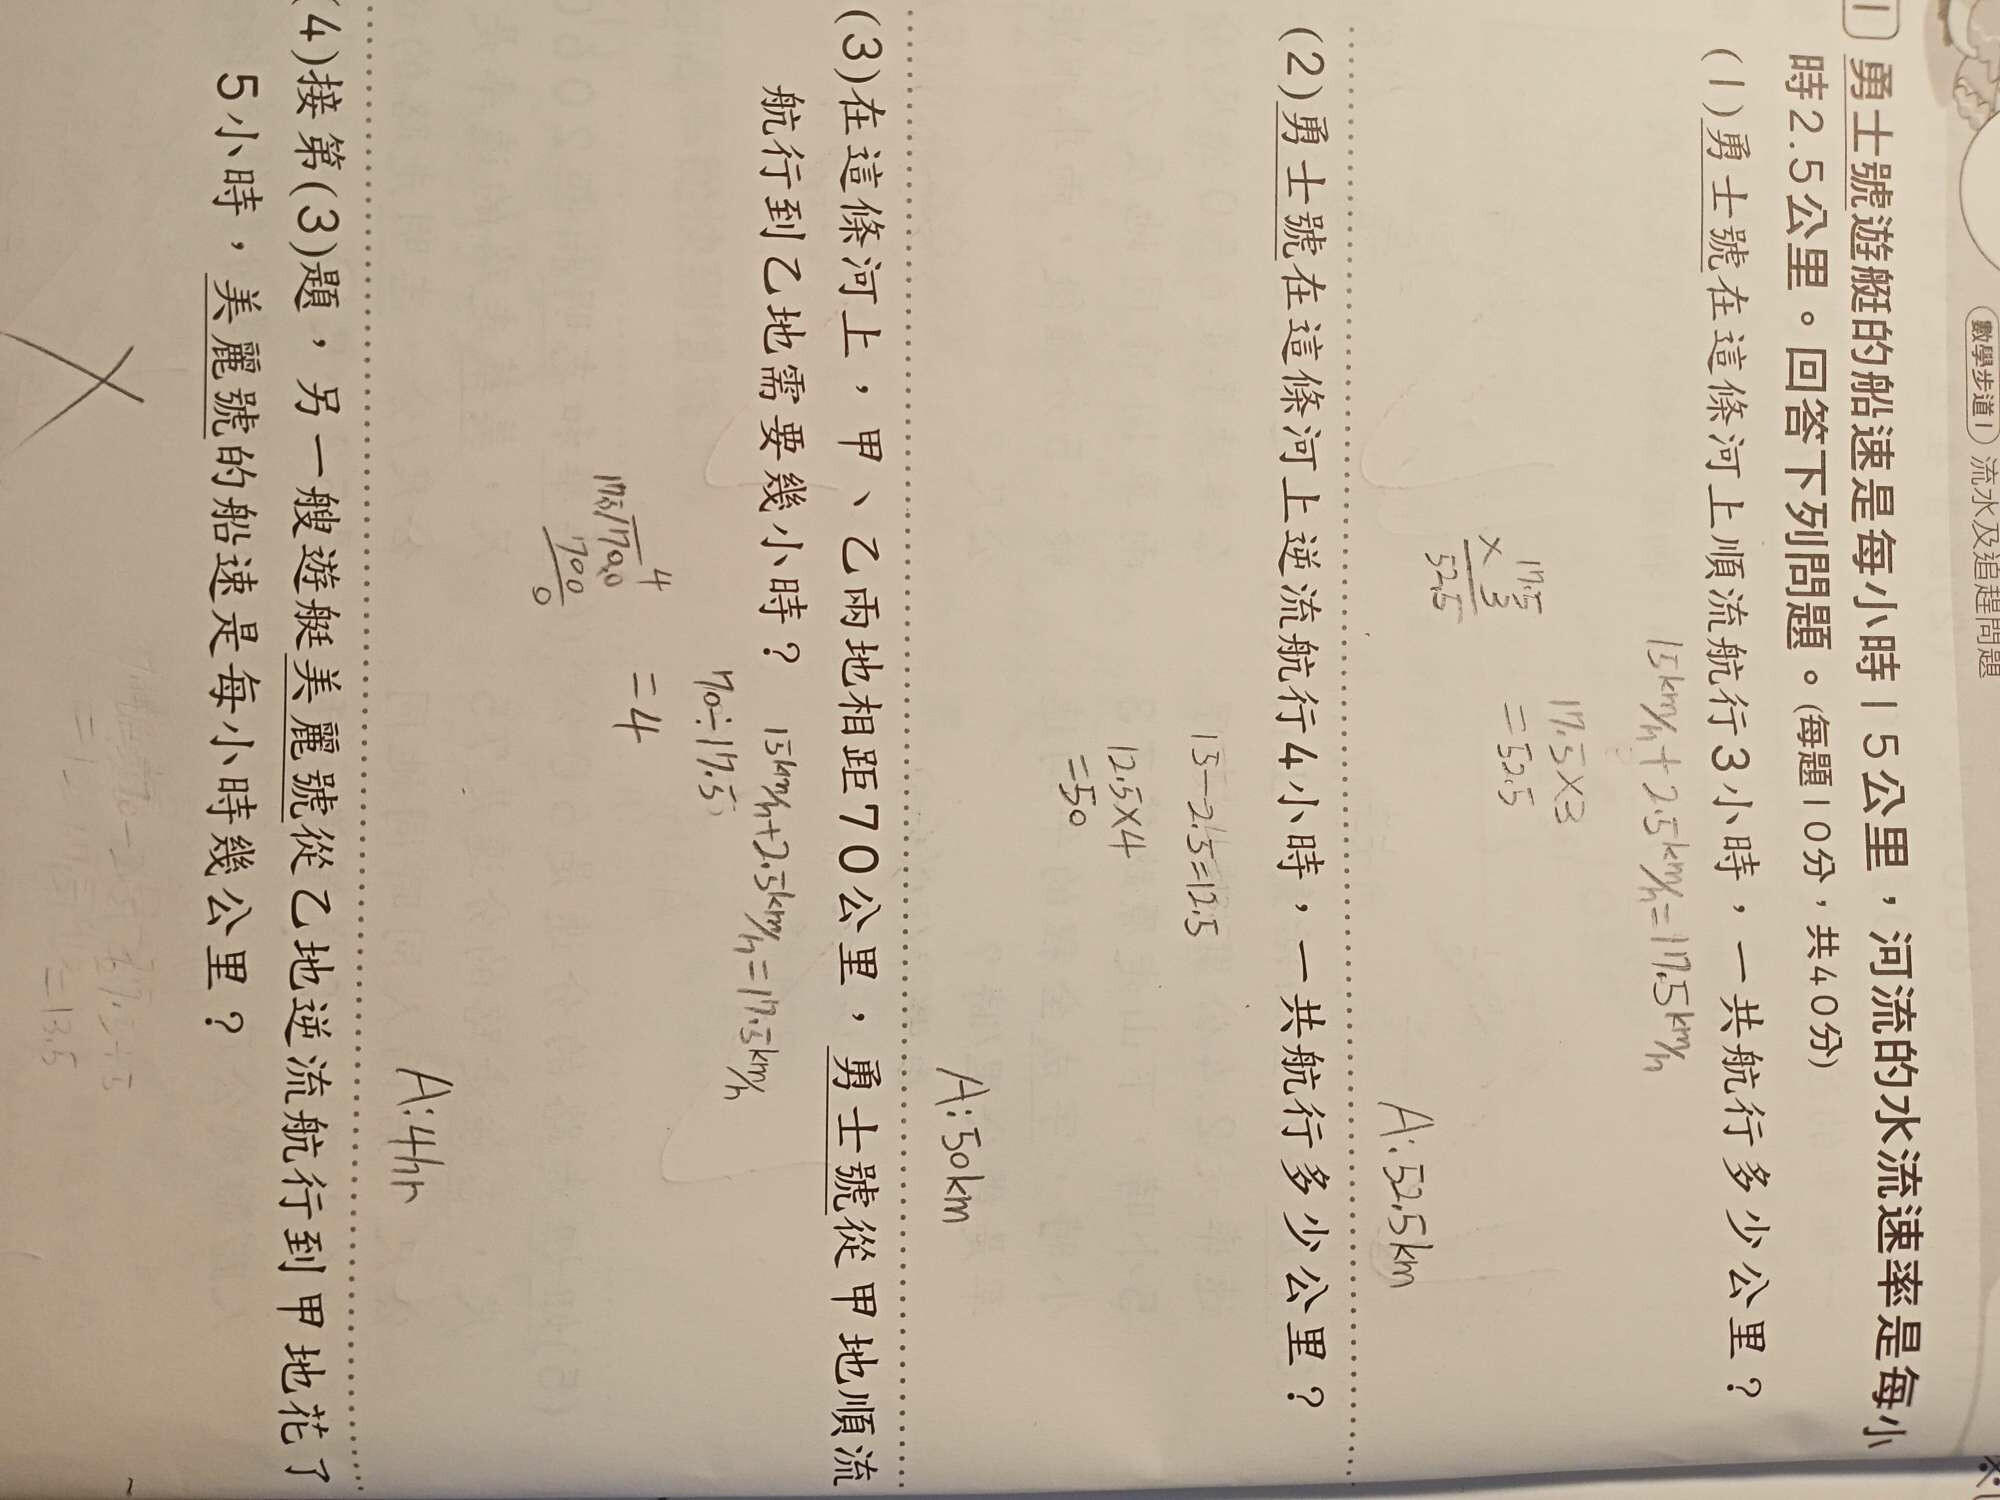 數學步道1 流水及追趕問題
1 勇士號遊艇的船速是每小時15公里,河流的水流速率是每小
時2.5公里。回答下列問題。(每題10分,共40分)
(1)勇士號在這條河上順流航行3小時,一共航行多少公里?
15km/h+2.5km/h=17.5km/h
17.5×3
=52.5
17.5
× 3
52.5
A:52.5km
(2)勇士號在這條河上逆流航行4小時,一共航行多少公里?
15-2.5=12.5
12.5×4
=50
A:50km
(3)在這條河上,甲、乙兩地相距70公里,勇士號從甲地順流
航行到乙地需要幾小時?
15km/h+2.5km/h=17.5km/h
70÷17.5
=4
4
700
0
A:4hr
(4)接第(3)題,另一艘遊艇美麗號從乙地逆流航行到甲地花了
5小時,美麗號的船速是每小時幾公里?
=13.5